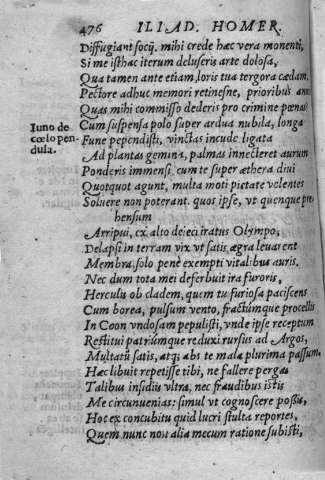 476 ILIAD. HOMER.
Diffugiant socij. mihi crede hac vera monenti,
Si me isthac iterum deluseris arte dolosa,
Qua tamen ante etiam, loris tua tergora cædam.
Pectore adhuc memori retinesne, prioribus annis
Quas mihi commisso dederis pro crimine pœnas
Iuno de
cœlo pen-
dula.
Cum suspensa polo super ardua nubila, longa
Fune pependisti, vinctas incude ligata
Ad plantas gemina, palmas innecteret aurum
Ponderis immensi, cum te super æthera diui
Quotquot agunt, multa moti pietate volentes
Soluere non poterant. quos ipse, vt quenque pre-
hensum
Arripui, ex alto deieci iratus Olympo,
Delapsi in terram vix vt satis ægra leuarent
Membra, solo penè exempti vitalibus auris.
Nec dum tota mei deferbuit ira furoris,
Herculis ob cladem, quem tu furiosa paciscens
Cum borea, pulsum vento, fractúmque procellis
In Coon vndosam pepulisti, vnde ipse receptum
Restitui patriúmque reduxi rursus ad Argos,
Multatũ satis, atq; abs te mala plurima passum.
Hæc libuit repetisse tibi, ne fallere pergas
Talibus insidiis vltra, nec fraudibus istis
Me circunuenias: simul vt cognoscere possis,
Hoc ex concubitu quid lucri stulta reportes,
Quem nunc non alia mecum ratione subisti,